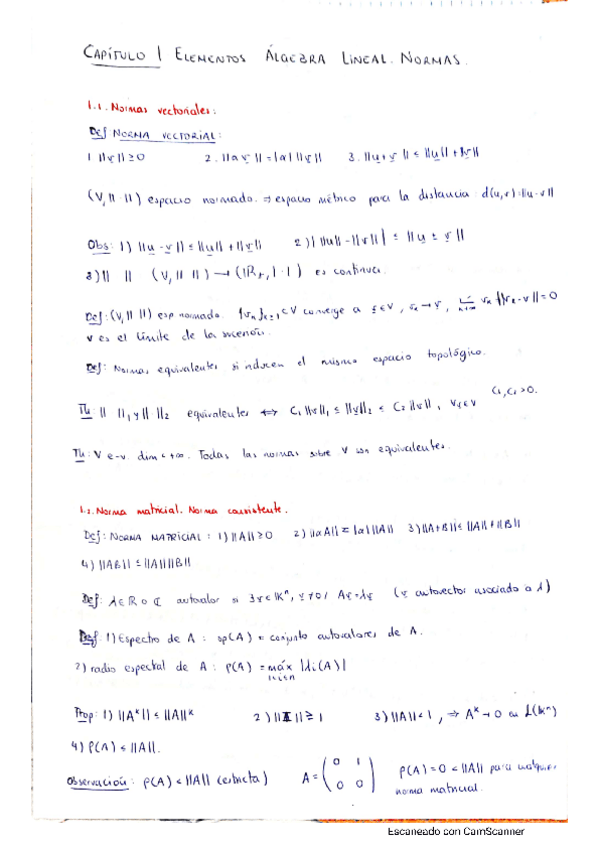 CAPÍTULO 1 ELEMENTOS ÁLGEBRA LINEAL. NORMAS.
1.1. Normas vectoriales:
Def NORMA VECTORIAL:
1. ||v|| ≥ 0 2. ||αv|| = |α| ||v|| 3. ||u+v|| ≤ ||u|| + ||v||
(V, || ||) espacio normado. ⇒ espacio métrico para la distancia d(u,v)=||u-v||
Obs: 1) ||u-v|| ≤ ||u|| + ||v|| 2) | ||u|| - ||v|| | ≤ ||u ± v||
3) || || (V, || ||) → (ℝ+, |·|) es continua.
Def: (V, || ||) esp normado. {vn}n≥1 ⊂ V converge a v∈V, vn→v, ||vn-v||=0
v es el límite de la
Def: Normas equivalentes si inducen el mismo espacio topológico.
Th: || ||1 y || ||2 equivalentes ⇔ C1||v||1 ≤ ||v||2 ≤ C2||v||1, ∀v∈V C1,C2>0.
Th: V e-v. dim<+∞. Todas las normas sobre V son equivalentes.
1.2. Norma matricial. Norma consistente.
Def: NORMA MATRICIAL: 1) ||A|| ≥ 0 2) ||αA|| = |α| ||A|| 3) ||A+B|| ≤ ||A|| + ||B||
4) ||AB|| ≤ ||A|| ||B||
Def: λ∈ℝ o ℂ autovalor si ∃v∈𝕂ⁿ, v≠0 / Av=λv (v autovector asociado a λ)
Def: 1) Espectro de A: sp(A) = conjunto autovalores de A.
2) radio espectral de A: ρ(A) = máx 1≤i≤n |λi(A)|
Prop: 1) ||Aᵏ|| ≤ ||A||ᵏ 2) ||I|| ≥ 1 3) ||A|| < 1, ⇒ Aᵏ→0 en L(𝕂ⁿ)
4) ρ(A) ≤ ||A||.
Observación: ρ(A) < ||A|| (estricta) A = (0 1 0 0) ρ(A)=0 < ||A|| para cualquier
norma matricial.
Escaneado con CamScanner